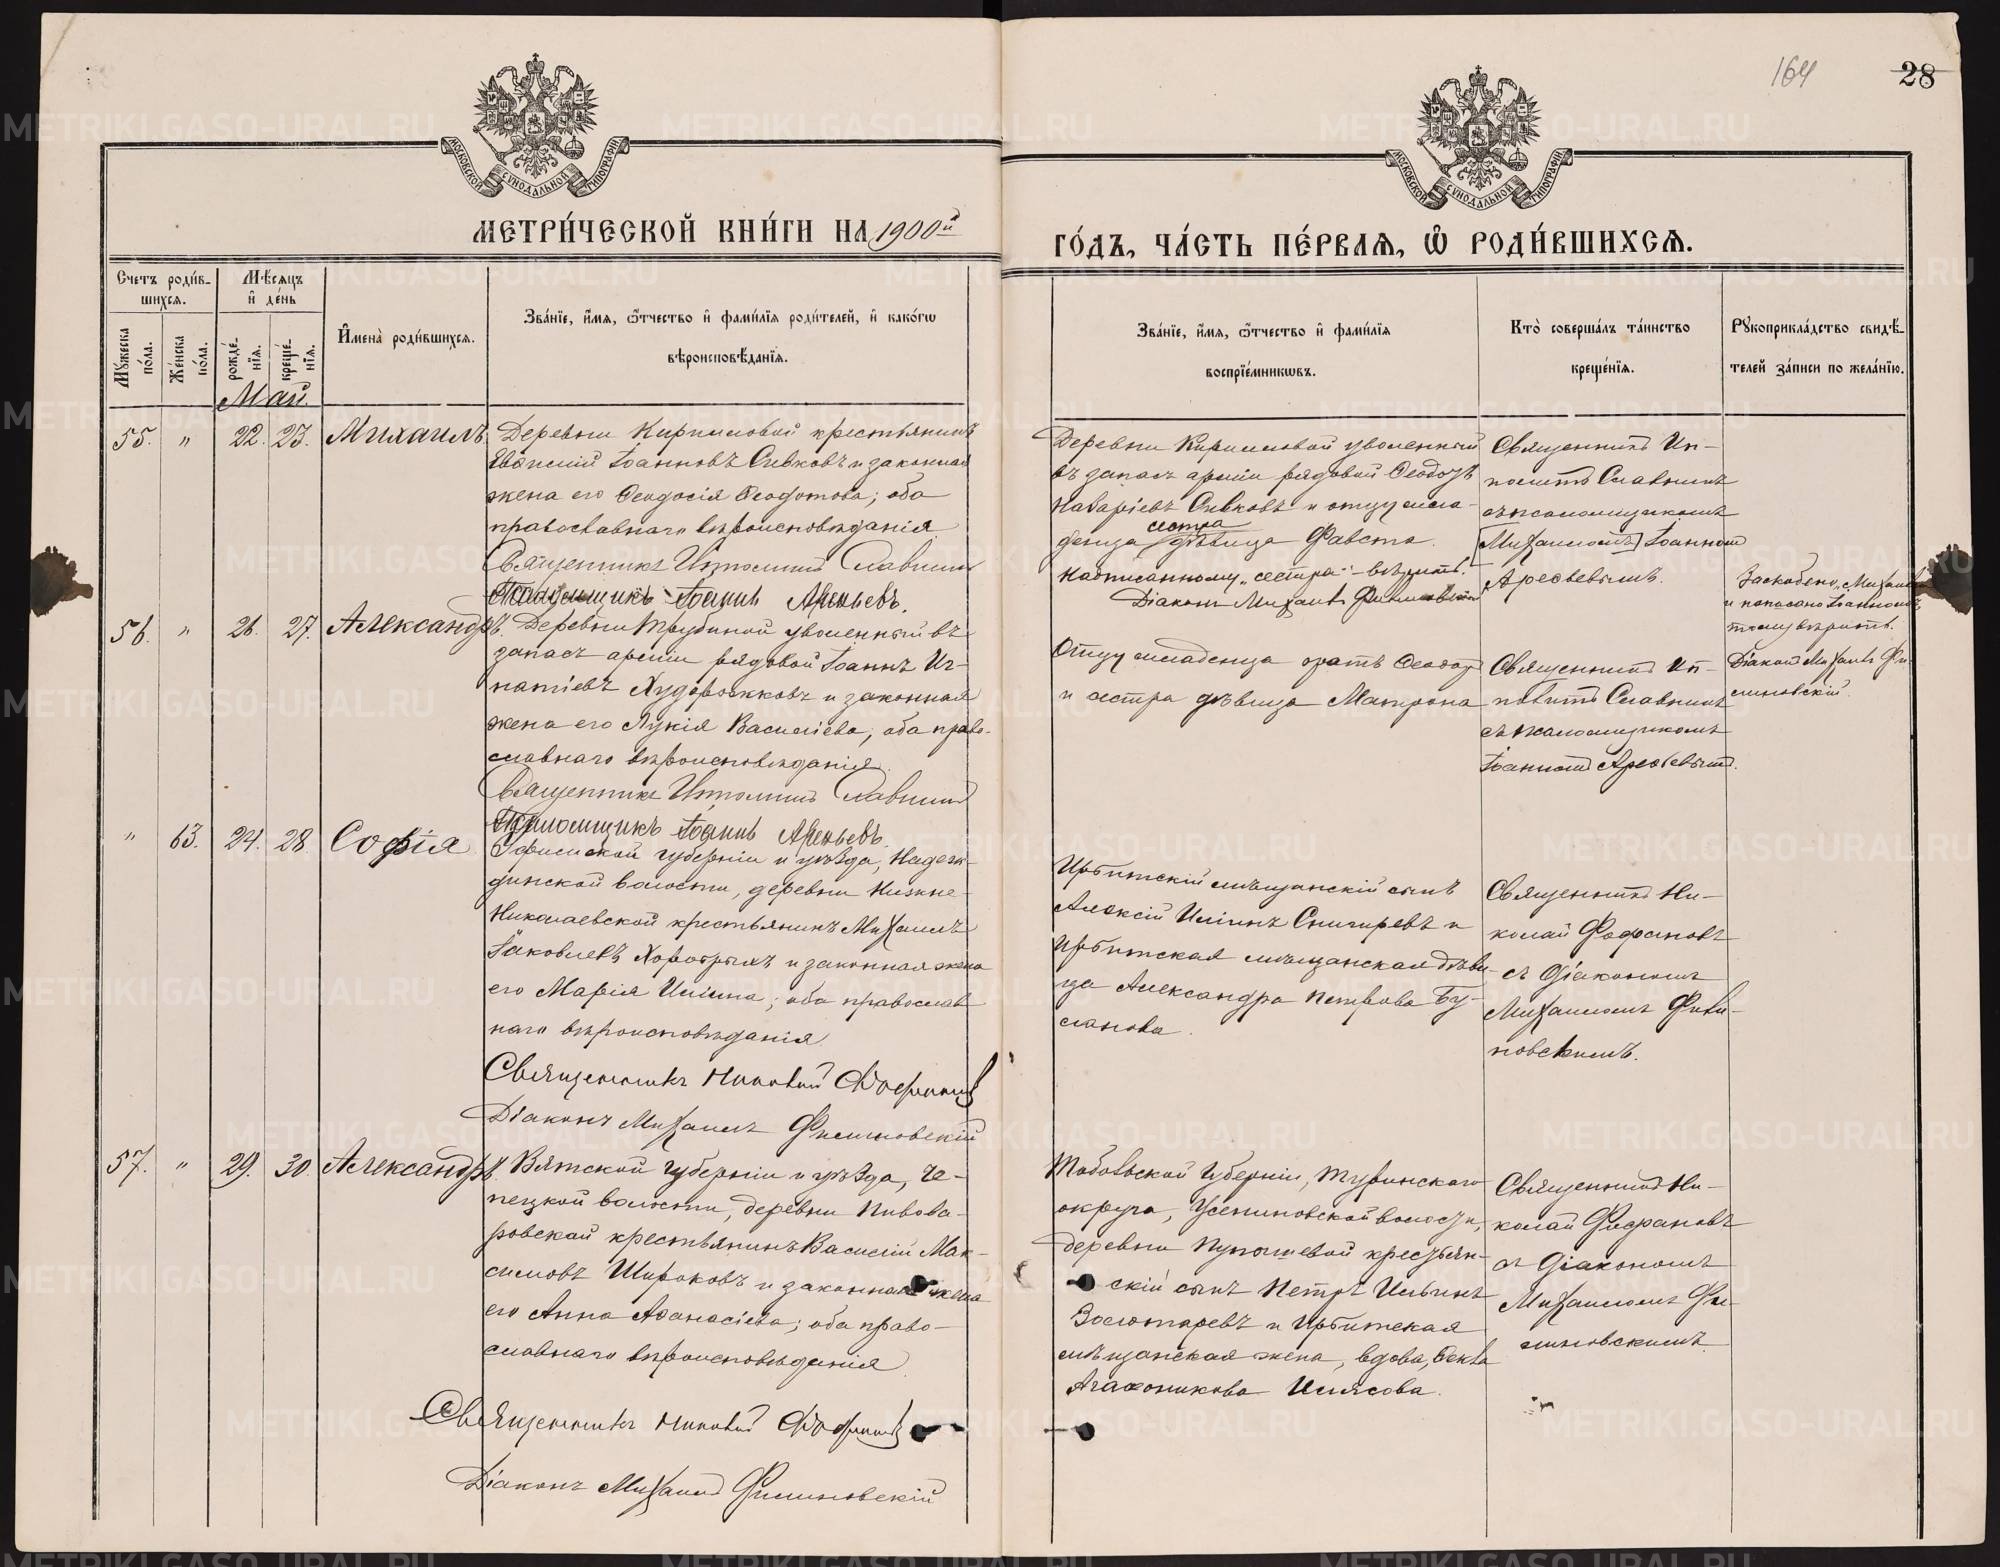 164
28
МОСКОВСКОЙ СѴНОДАЛЬНОЙ ТИПОГРАФІИ
МОСКОВСКОЙ СѴНОДАЛЬНОЙ ТИПОГРАФІИ
МЕТРИ́ЧЕСКОЙ КНИ́ГИ НА 1900й
ГО́ДЪ, ЧА́СТЬ ПЕ́РВАѦ, Ѡ҆ РОДИ́ВШИХСѦ.
Счетъ роди́в-
шихсѧ.
Мѣ́сѧцъ
и҆ де́нь
Мꙋ́жеска по́ла.
Же́нска по́ла.
рожде́-
нїѧ.
креще́-
нїѧ.
И҆мена̀ роди́вшихсѧ.
Зва́нїе, и҆́мѧ, ѻ҆́тчество и҆ фами́лїѧ роди́телей, и҆ како́гѡ
вѣроисповѣ́данїѧ.
Зва́нїе, и҆́мѧ, ѻ҆́тчество и҆ фами́лїѧ
воспрїе́мникѡвъ.
Кто̀ соверша́лъ та́инство
креще́нїѧ.
Рꙋкоприкла́дство свидѣ́-
телей за́писи по жела́нїю.
Май.
55. " 22. 23. Михаилъ
Деревни Кирилловой крестьянинъ
Іоанновъ Сивковъ и законная
жена его Ѳеодосія Ѳеодотова; оба
православнаго вѣроисповѣданія
Священникъ Ипполитъ Славнинъ
Псаломщикъ Іоаннъ Арефьевъ.
Деревни Кирилловой уволенный
въ запасъ арміи рядовой
Сивковъ и отцу мла-
сестра
денца дѣвица Фавста.
Надписанному „сестра" – вѣрить.
Діаконъ Михаилъ Филиновскій
Священникъ Ип-
политъ Славнинъ
съ псаломщикомъ
[Михаиломъ] Іоанномъ
Арефьевымъ.
Заскоблено „Михаилъ
и написано Іоанномъ
тому вѣрить.
Діаконъ Михаилъ Фи-
линовскій.
56. " 26. 27. Александръ.
Деревни Трубиной уволенный въ
запасъ арміи рядовой Іоаннъ Иг-
натіевъ Худорожковъ и законная
жена его Лукія Василіева; оба право-
славнаго вѣроисповѣданія.
Священникъ Ипполитъ Славнинъ
Псаломщикъ Іоаннъ Арефьевъ.
Отцу младенца братъ Ѳеодоръ
и сестра дѣвица Матрона
Священникъ Ип-
политъ Славнинъ
съ псаломщикомъ
Іоанномъ Арефьевымъ.
" 63. 24. 28. Софія
Уфимской губерніи и уѣзда, Надеж-
динской волости, деревни Нижне-
Николаевской крестьянинъ Михаилъ
Іаковлевъ Хоробрыхъ и законная жена
его Марія Иліина; оба православ
наго вѣроисповѣданія
Священникъ Николай Фофановъ
Діаконъ Михаилъ Филиновскій
Ирбитскій мѣщанскій сынъ
Алексій Иліинъ Снигиревъ и
Ирбитская мѣщанская дѣви-
ца Александра Петрова Бу-
сланова.
Священникъ Ни-
колай Фофановъ
съ діакономъ
Михаиломъ Фили-
новскимъ.
57. " 29. 30. Александръ.
Вятской губерніи и уѣзда, Че-
пецкой волости, деревни Пивова-
ровской крестьянинъ Василій Мак-
симовъ Широковъ и законная жена
его Анна Аѳанасіева; оба право-
славнаго вѣроисповѣданія
Священникъ Николай Фофановъ
Діаконъ Михаилъ Филиновскій
Тобольской губерніи, Туринскаго
округа, Усениновской волости,
деревни крестьян-
скій сынъ Петръ Ильинъ
Золотаревъ и Ирбитская
мѣщанская жена, вдова, Ѳекла
Агафоникова Илясова.
Священникъ Ни-
колай Фофановъ
съ діакономъ
Михаиломъ Фи-
линовскимъ
METRIKI.GASO-URAL.RU